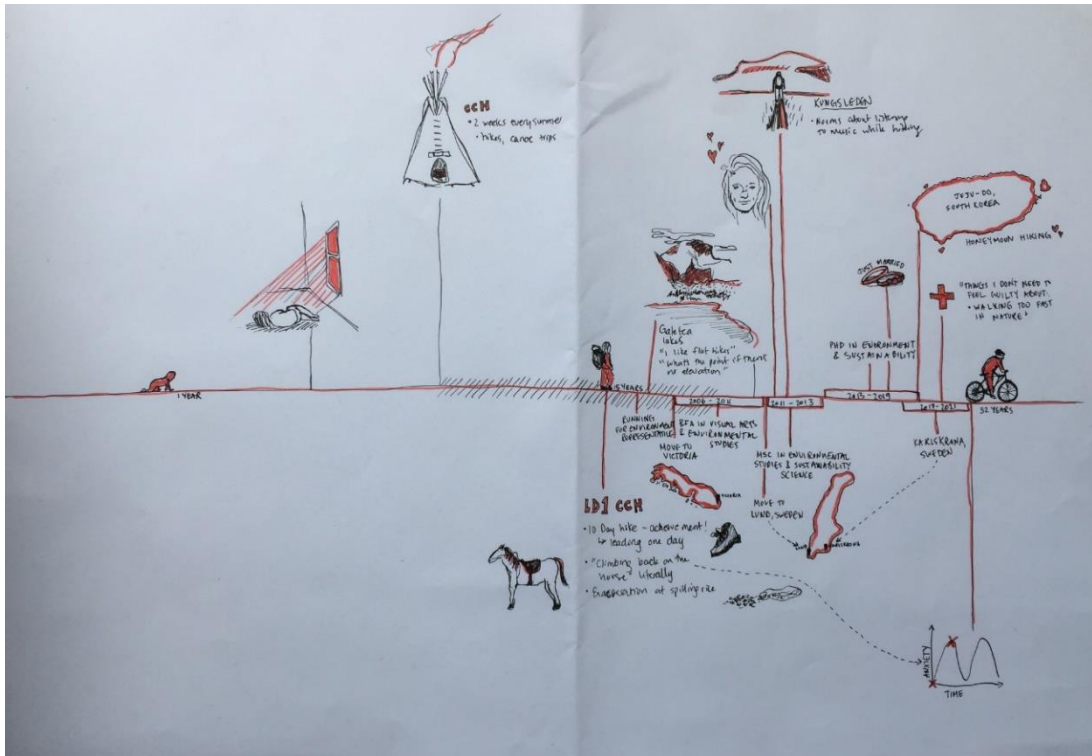 CCH
• 2 weeks every summer
• hikes, canoe trips
KUNGSLEDEN
• Norms about listening
to music while hiking
JEJU-DO,
SOUTH KOREA
HONEYMOON HIKING
JUST MARRIED
"THINGS I DON'T NEED TO
FEEL GUILTY ABOUT:
• WALKING TOO FAST
IN NATURE"
PHD IN ENVIRONMENT
& SUSTAINABILITY
lakes
"I like flat hikes"
"what's the point if there's
no elevation"
1 YEAR
15 YEARS
2006 - 2011
2011 - 2013
2013 - 2019
2019 - 2021
32 YEARS
RUNNING
FOR ENVIRONMENT
REPRESENTATIVE
BFA IN VISUAL ARTS
& ENVIRONMENTAL
STUDIES
MOVE TO
VICTORIA
VICTORIA
MSC IN ENVIRONMENTAL
STUDIES & SUSTAINABILITY
SCIENCE
KARLSKRONA,
SWEDEN
MOVE TO
LUND, SWEDEN
LUND
KARLSKRONA
LD1 CCH
• 10 Day hike - achievement!
↳ leading one day
• "Climbing back on the
horse" literally
• at spilling rice
ANXIETY
TIME